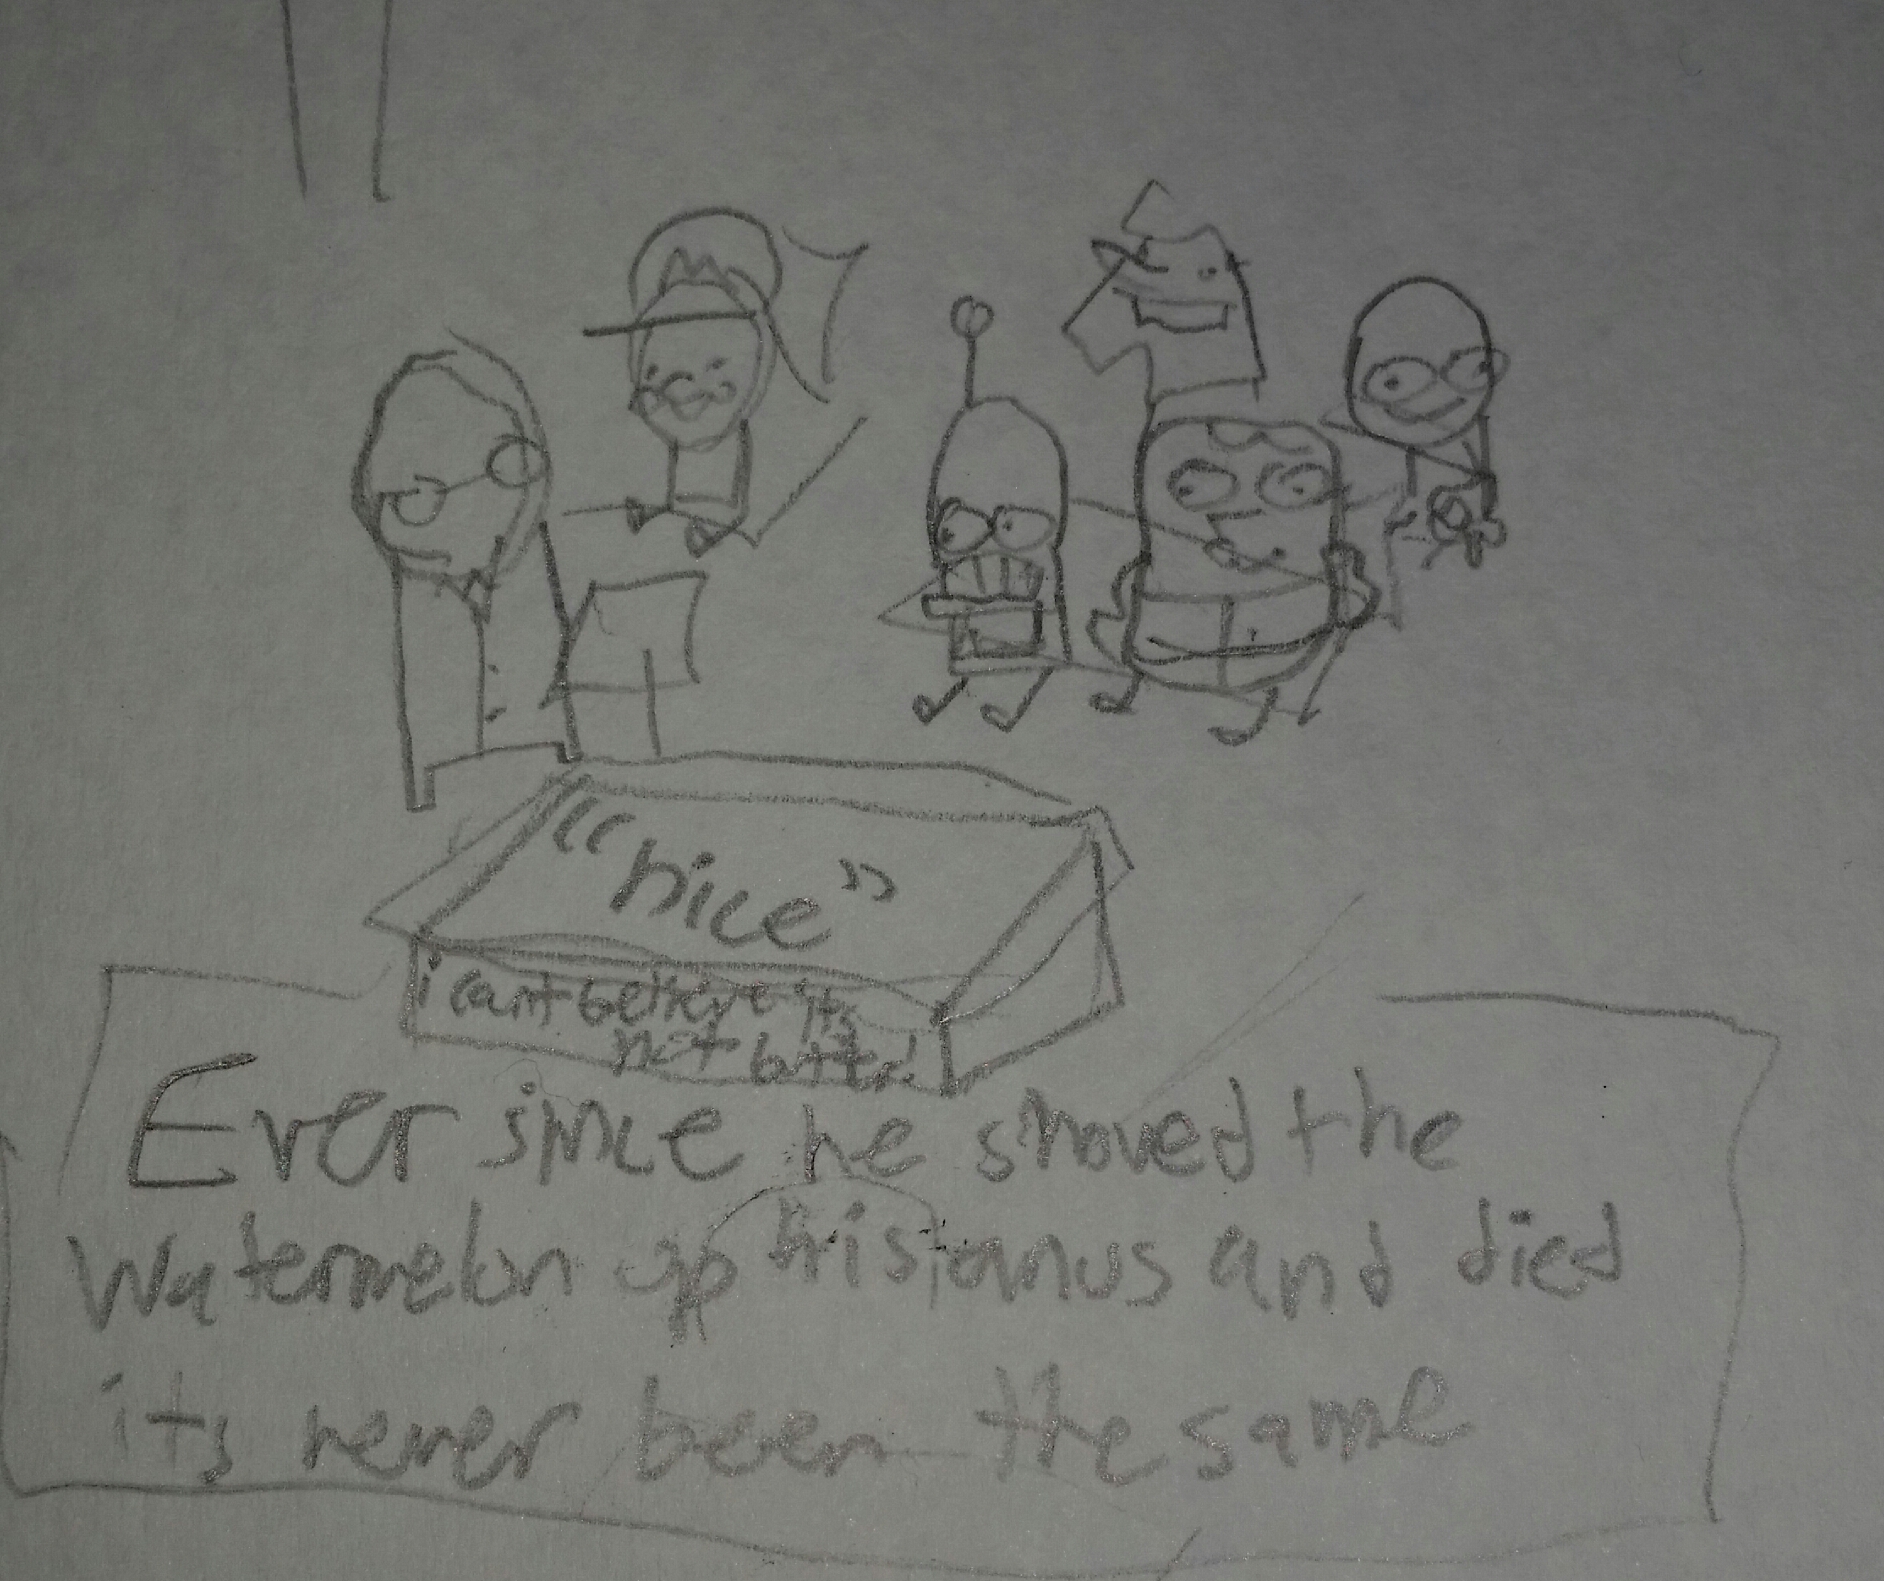 M
"nice"
i cant believe its
not butter!
Ever since he shoved the
watermelon up his anus and died
its never been the same